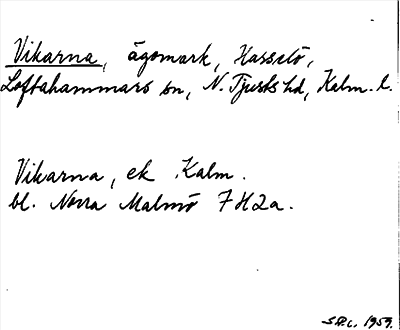 Vikarna, ägomark, Hasselö,
Loftahammars sn, N. Tjusts hd, Kalm. l.
Vikarna, ek Kalm.
bl. Norra Malmö 7H2a.
1959.